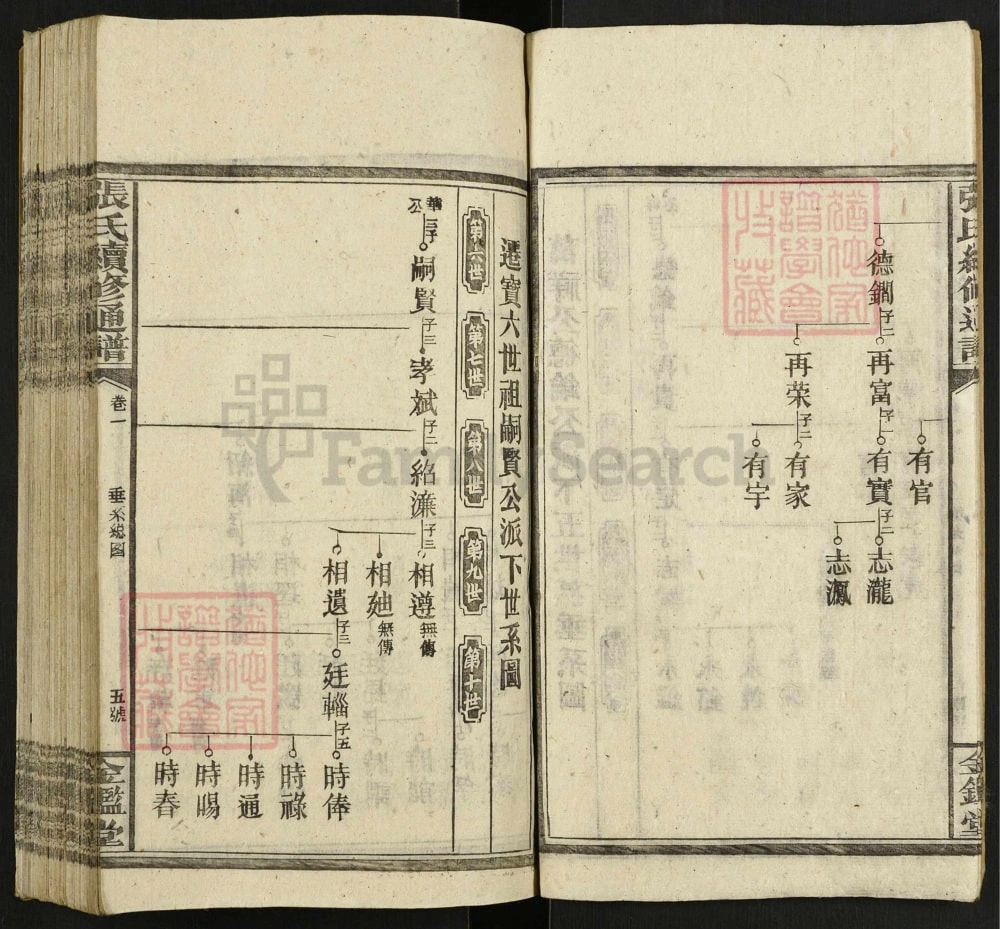 有官
德鐗
子二
再富
子一
有寶
子二
志瀧
志渢
再荣
子二
有家
有宇
金鑑堂
遷寶六世祖嗣賢公派下世系圖
第六世
第七世
第八世
第九世
第十世
華公
子
嗣賢
子三
孝斌
子二
紹濂
子三
相遵
無傳
相廸
無傳
相遺
子三
廷輜
子五
時俸
時祿
時通
時賜
時春
張氏續修通譜
卷一
垂系總圖
五號
金鑑堂
FamilySearch